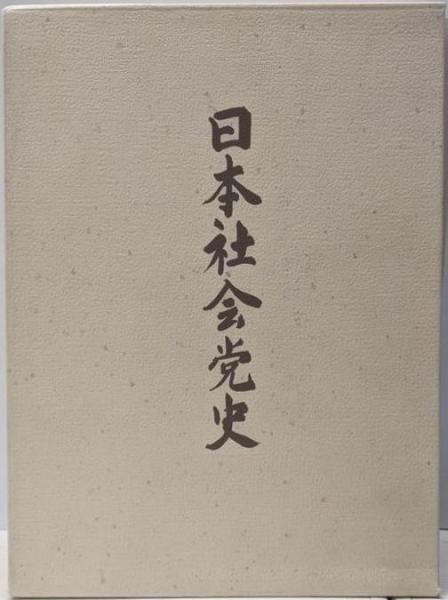 日本社会党史